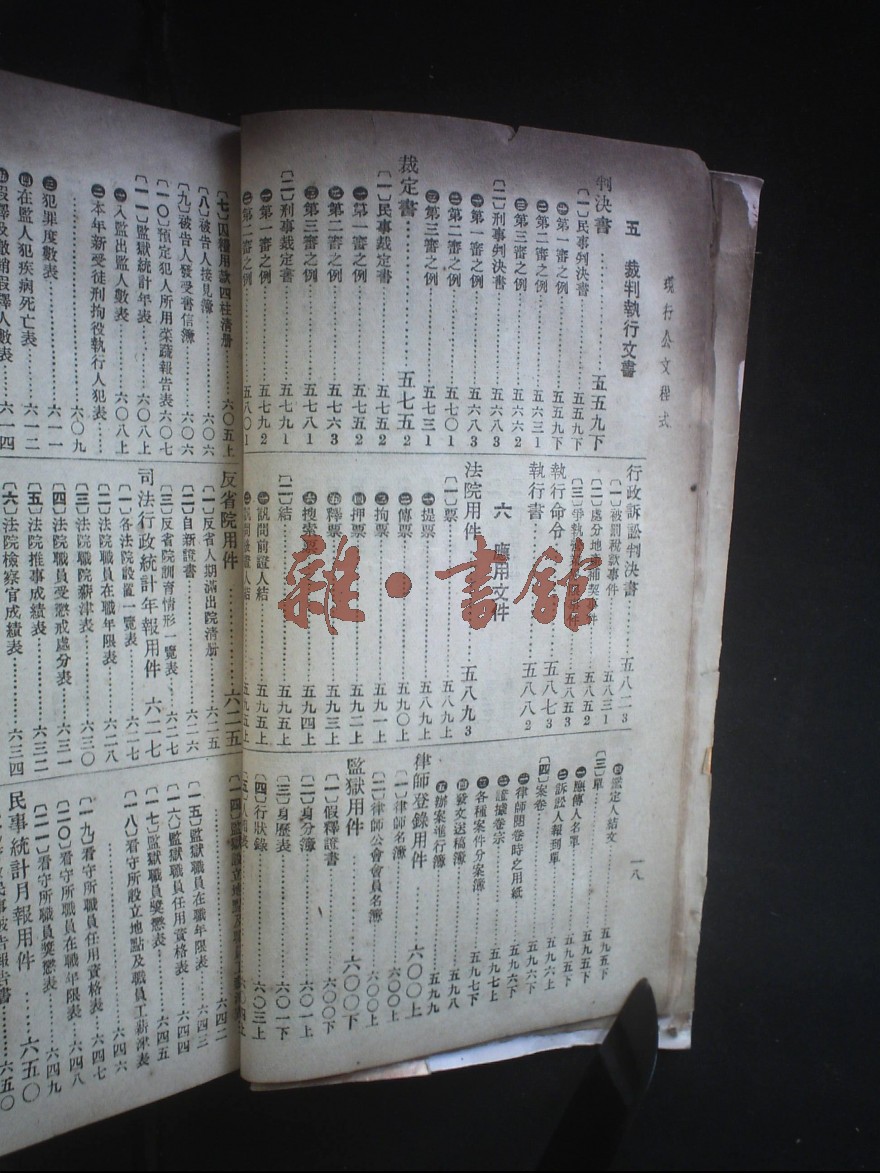 現行公文程式
一八
五 裁判執行文書
判決書……五五九下
〔一〕民事判決書……五五九下
㊀第一審之例……五五九下
㊁第二審之例……五六三1
㊂第三審之例……五六六2
〔二〕刑事判決書……五六八3
㊀第一審之例……五六八3
㊁第二審之例……五七〇1
㊂第三審之例……五七三1
裁定書……五七五2
〔一〕民事裁定書……五七五2
㊀第一審之例……五七五2
㊁第二審之例……五七六3
㊂第三審之例……五七八1
〔二〕刑事裁定書……五七九1
㊀第一審之例……五七九2
㊁第二審之例……五八〇1
行政訴訟判決書……五八二3
〔一〕被罰稅款事件……五八三1
〔二〕處分地……補契事件……五八五2
〔三〕爭執……事件……五八五3
執行命令……五八七3
執行書……五八八2
六 應用文件
法院用件……五八九3
〔一〕票……五八九上
㊀提票……五八九上
㊁傳票……五九〇上
㊂拘票……五九一上
㊃押票……五九二上
㊄釋票……五九三上
㊅搜索票……五九四上
〔二〕結……五九五上
㊀訊問前證人結……五九五上
㊁訊問後證人結……五九五上
㊃鑑定人結文……五九五下
〔三〕單……五九五下
㊀應傳人名單……五九五下
㊁訴訟人報到單……五九五下
〔四〕案卷……五九六上
㊀律師閱卷時之用紙……五九六下
㊁證據卷宗……五九六下
㊂各種案件分案簿……五九七上
㊃發文送稿簿……五九七下
㊄辦案進行簿……五九八
五九九
律師登錄用件……六〇〇上
〔一〕律師名簿……六〇〇上
〔二〕律師公會會員名簿……六〇〇上
監獄用件……六〇〇下
〔一〕假釋證書……六〇〇下
〔二〕身分簿……六〇一上
〔三〕身歷表……六〇一下
〔四〕行狀錄……六〇三上
〔七〕囚糧用款四柱清册……六〇五上
〔八〕被告人接見簿……六〇六
〔九〕被告人發受書信簿……六〇六
〔一〇〕預定犯人所用菜蔬報告表……六〇七
〔一一〕監獄統計年表……六〇八上
㊀入監出監人數表……六〇八上
㊁本年新受徒刑拘役執行人犯表……六〇九
㊂犯罪度數表……六一一
㊃在監人犯疾病死亡表……六一二
㊄假釋及撤銷假釋人數表……六一四
反省院用件……六一五
〔一〕反省人期滿出院清册……六一五
〔二〕自新證書……六一六
〔三〕反省院訓育情形一覽表……六二七
司法行政統計年報用件……六二七
〔一〕各法院設置一覽表……六二七
〔二〕法院職員在職年限表……六二八
〔三〕法院職院薪津表……六三〇
〔四〕法院職員受懲戒處分表……六三一
〔五〕法院推事成績表……六三二
〔六〕法院檢察官成績表……六三四
〔一四〕監獄設立地點及
〔一五〕監獄職員在職年限表……六四二
〔一六〕監獄職員任用資格表……六四三
〔一七〕監獄職員獎懲表……六四四
〔一八〕看守所設立地點及職員工薪津表……六四五
……六四六
〔一九〕看守所職員任用資格表……六四七
〔二〇〕看守所職員在職年限表……六四八
〔二一〕看守所職員獎懲表……六四九
民事統計月報用件……六五〇
六五〇
雜·書館